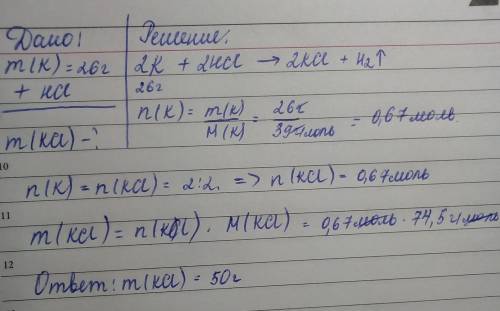 Дано! Решение:
m(K)=26г 2K + 2HCl → 2KCl + H₂↑
+ HCl 26г
m(KCl)-? n(K) = m(K)/M(K) = 26г/39г/моль = 0,67моль
10
n(K) = n(KCl) = 2:2. => n(KCl) = 0,67моль
11
m(KCl) = n(KCl) · M(KCl) = 0,67моль · 74,5г/моль
12
Ответ: m(KCl) = 50г